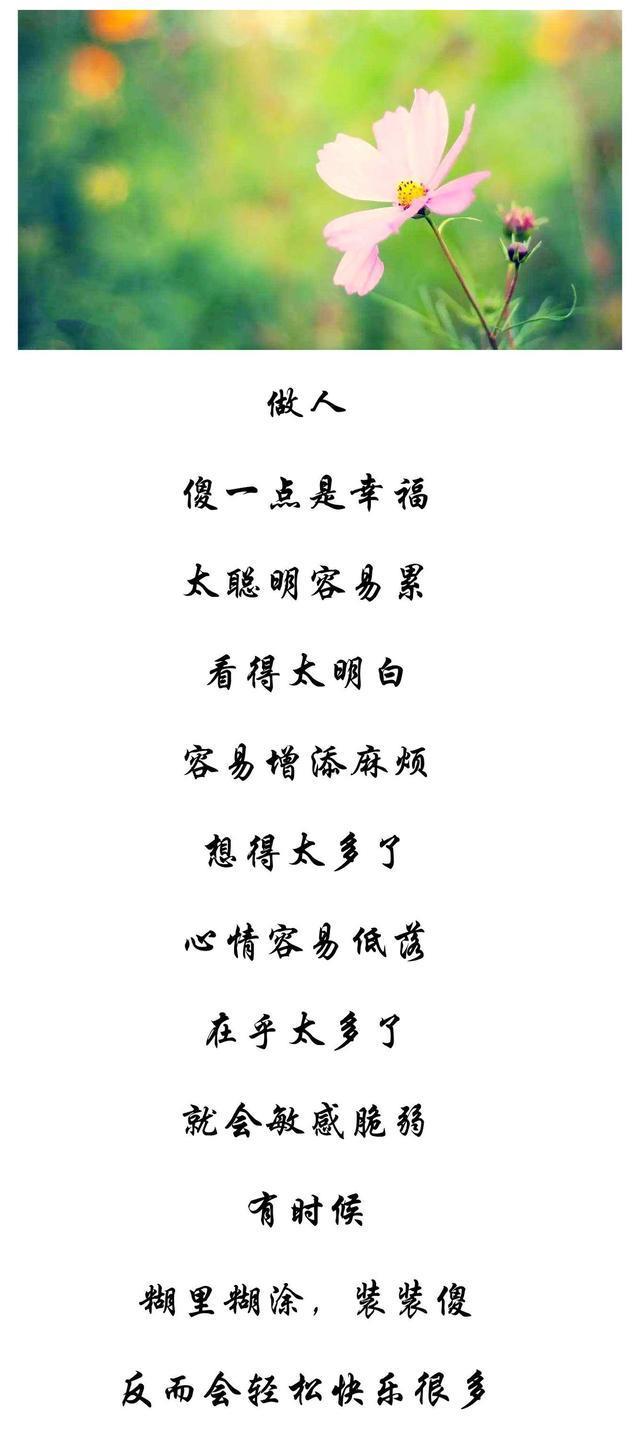 做人
傻一点是幸福
太聪明容易累
看得太明白
容易增添麻烦
想得太多了
心情容易低落
在乎太多了
就会敏感脆弱
有时候
糊里糊涂，装装傻
反而会轻松快乐很多